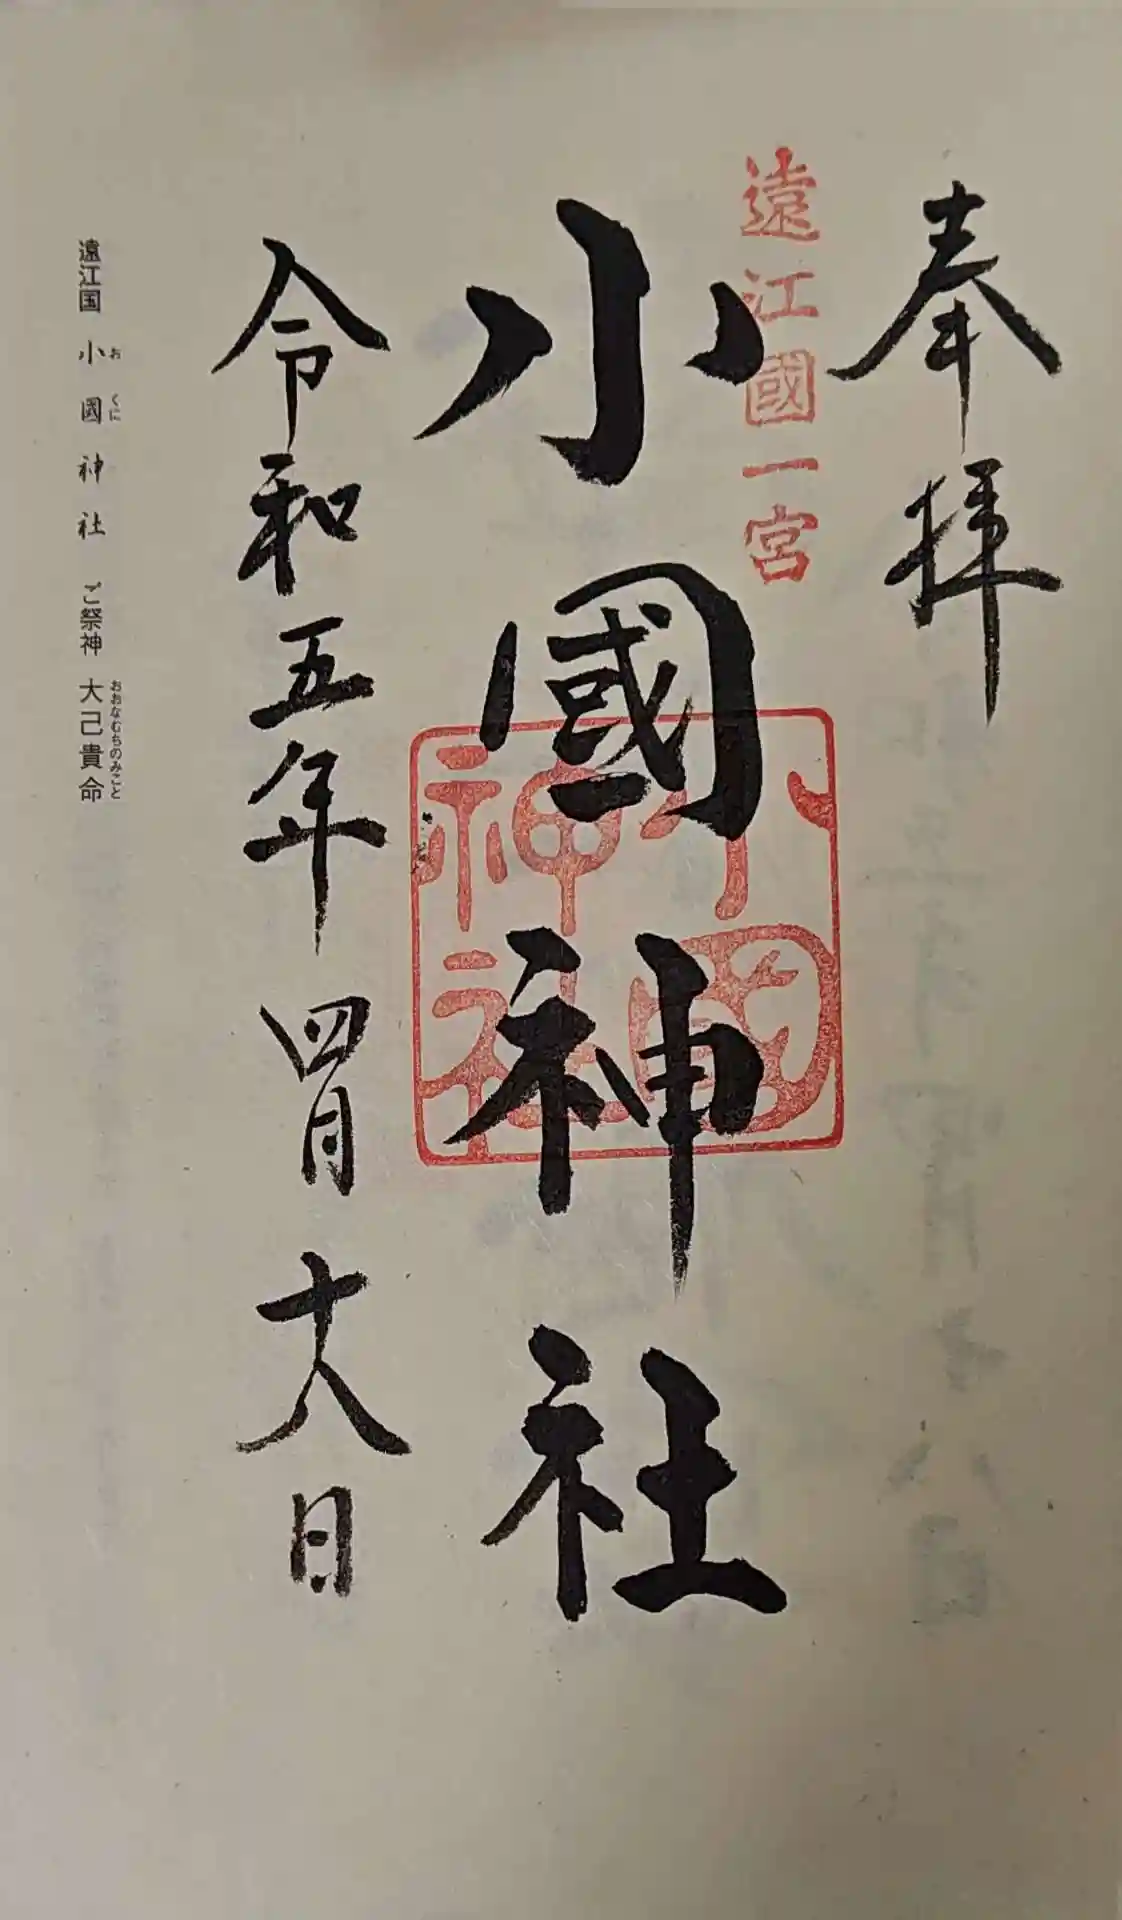 奉拝
遠江國一宮
小國神社
小國神社
令和五年四月十八日
遠江国 小國神社 ご祭神 大己貴命
お くに おおなむちのみこと